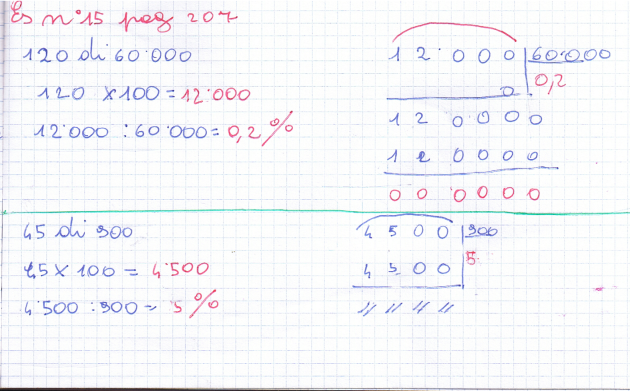 Es n°15 pag 207
120 di 60.000
120 x100=12.000
12.000 :60.000=0,2%
12.000 60.000
0 0,2
12 0.000
12 0000
00 0000
45 di 900
45 x 100 = 4.500
4.500 :900= 5%
4500 900
4500 5
"" "" "" ""